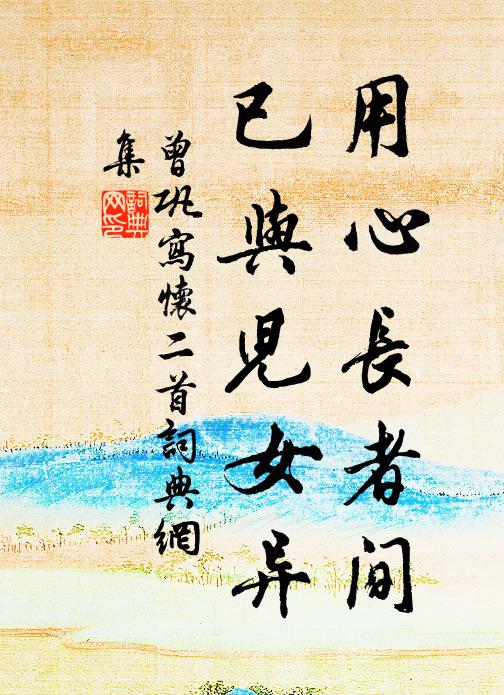 用心長者间
已與児女异
曾巩寫懷二首詞典網
集
詞典
网印